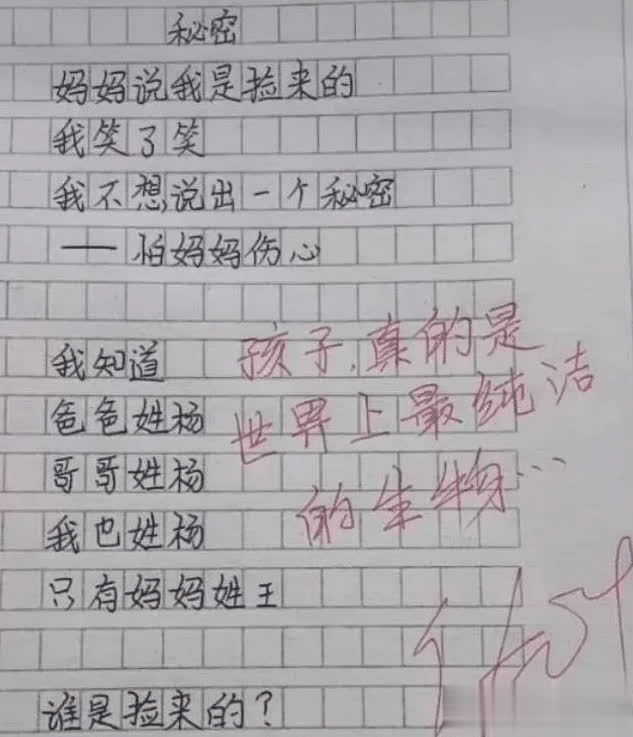 秘密
妈妈说我是捡来的
我笑了笑
我不想说出一个秘密
——怕妈妈伤心
我知道
爸爸姓杨
哥哥姓杨
我也姓杨
只有妈妈姓王
谁是捡来的?
孩子,真的是
世界上最纯洁
的生物…